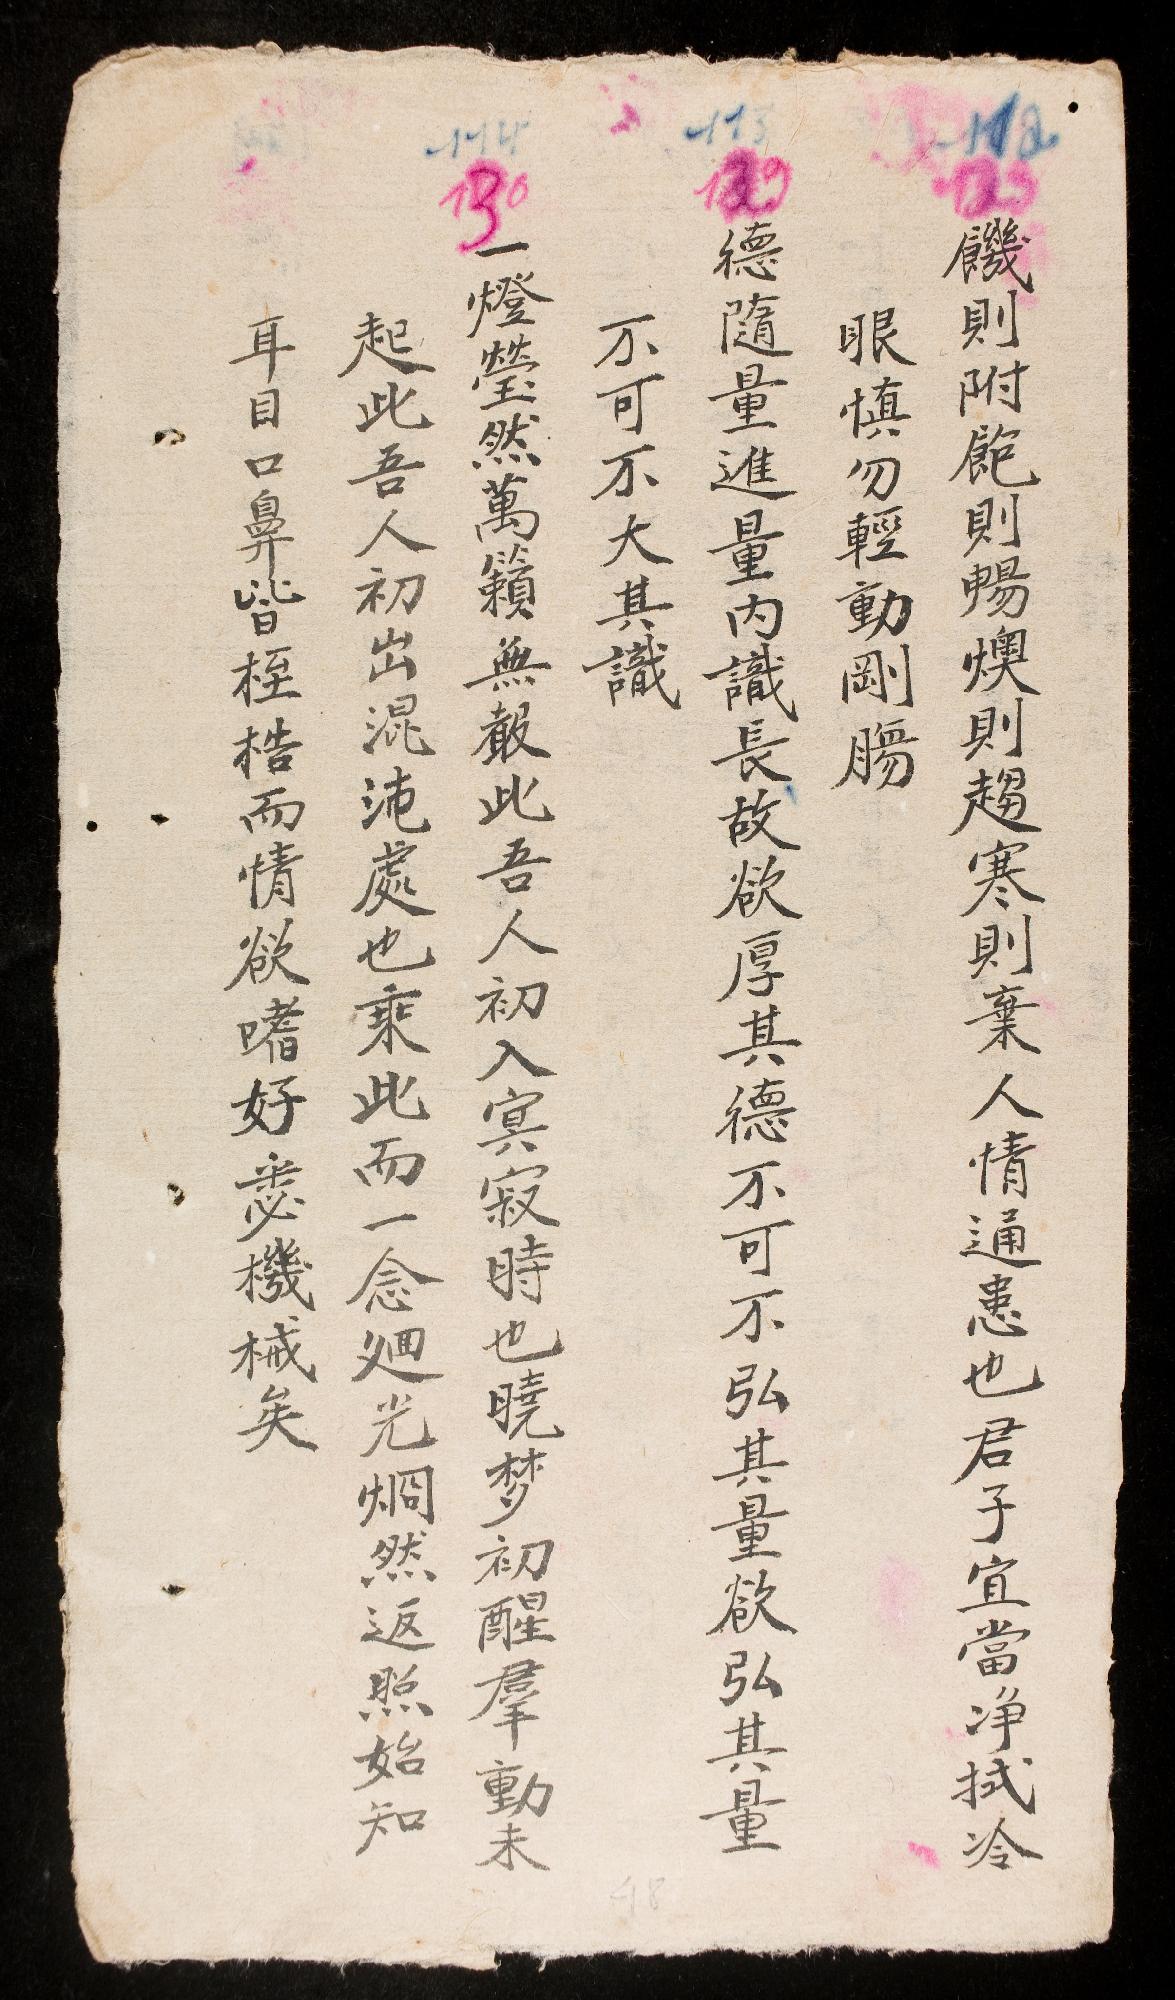 112
饑則附飽則暢燠則趨寒則棄人情通患也君子宜當净拭冷
眼慎勿輕動剛腸
113
129
德隨量進量内識長故欲厚其德不可不弘其量欲弘其量
不可不大其識
114
130
一燈瑩然萬籟無聲此吾人初入冥寂時也曉梦初醒羣動未
起此吾人初出混沌處也乘此而一念廻光烱然返照始知
耳目口鼻皆桎梏而情欲嗜好悉機械矣
48